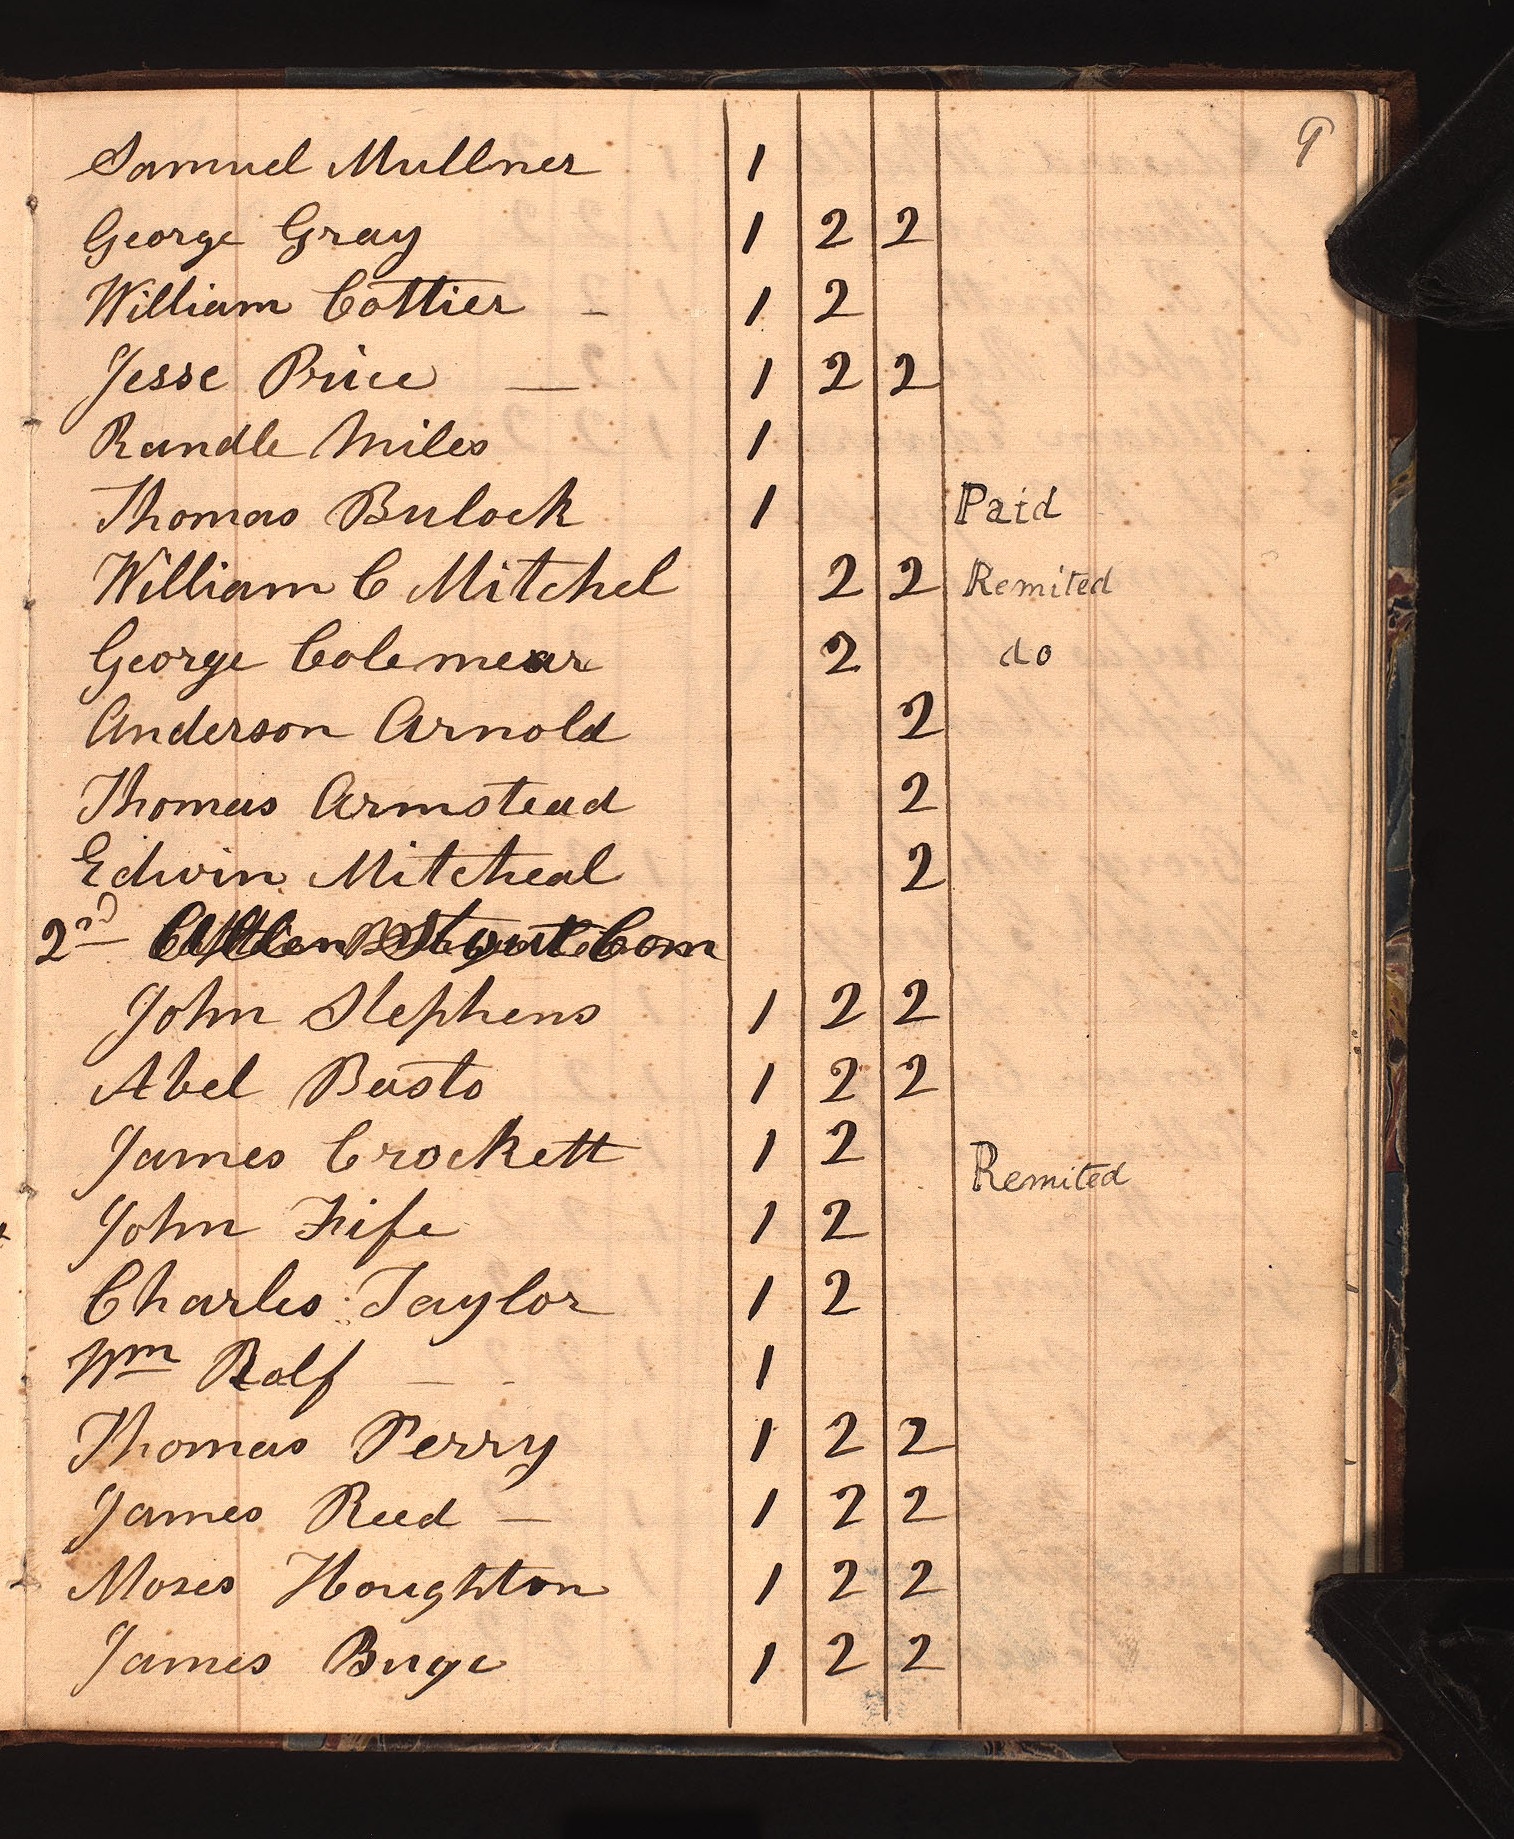 9
Samuel Mullner 1
George Gray 1 2 2
William Cottier - 1 2
Jesse Brice — 1 2 2
Randle Miles 1
Thomas Bulock 1 Paid
William C Mitchel 2 2 Remited
George Colemear 2 do
Anderson Arnold 2
Thomas Armstead 2
Edwin Mitcheal 2
2nd Com
John Stephens 1 2 2
Abel Basto 1 2 2
James Crockett 1 2 Remited
John Fife 1 2
Charles Taylor 1 2
Wm Rolf — - 1
Thomas Perry 1 2 2
James Reed — 1 2 2
Moses Houghton 1 2 2
James Buge 1 2 2